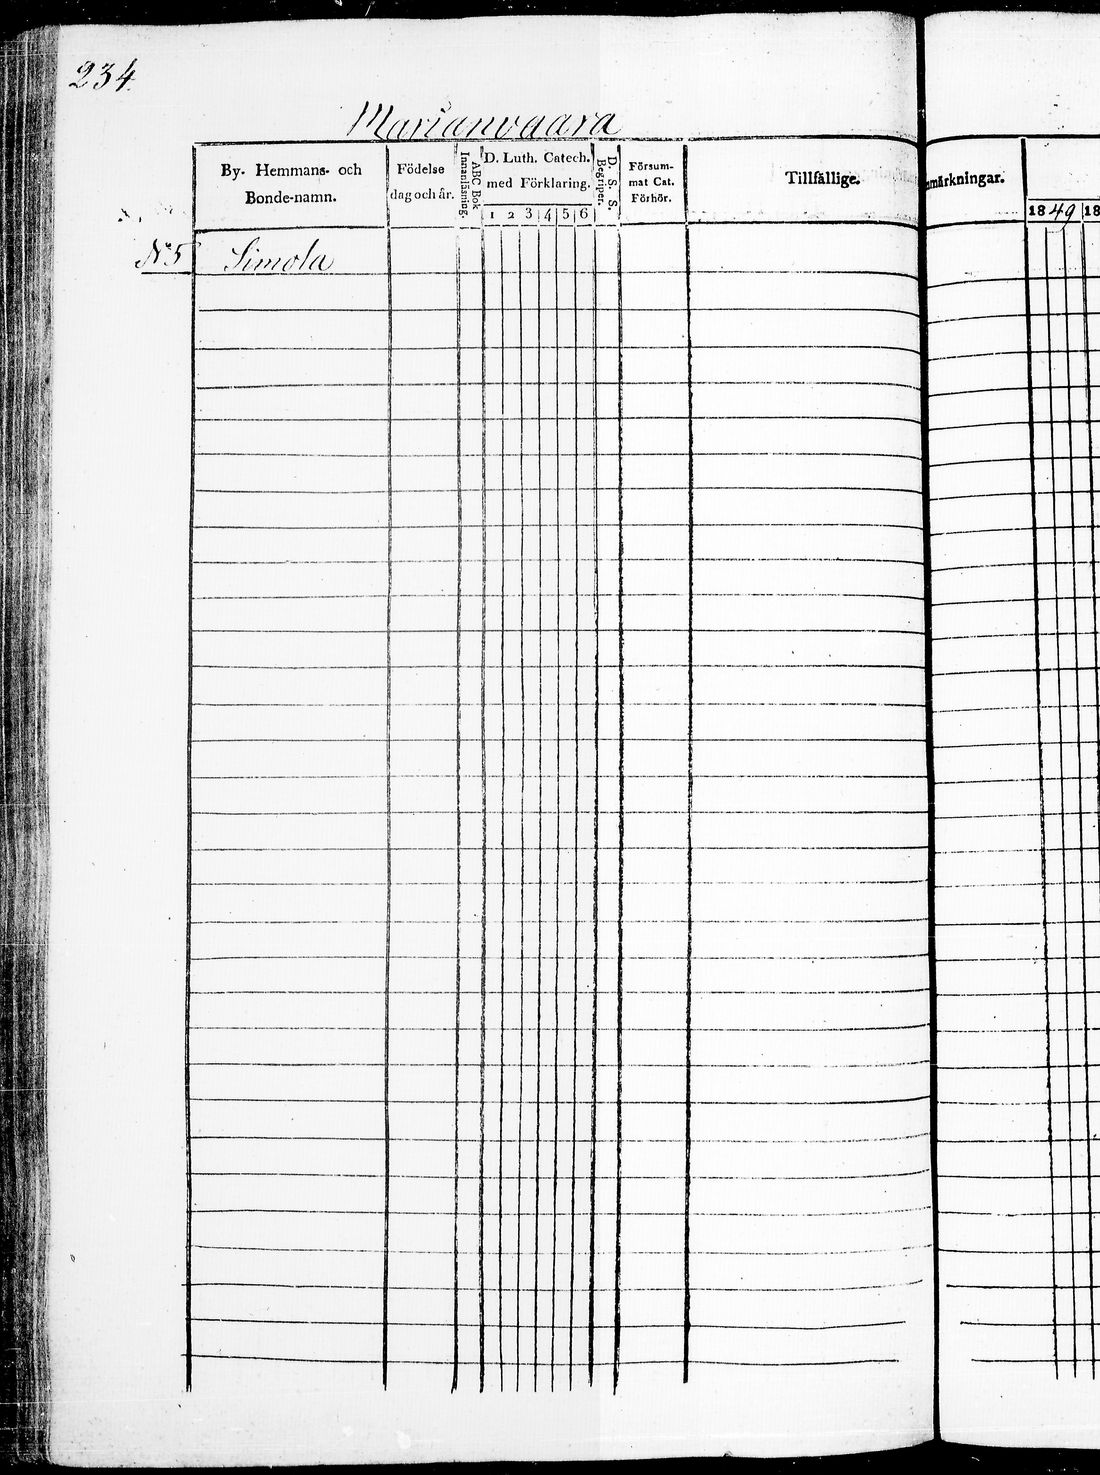 234.
Marianvaara
By- Hemmans- och
Bonde-namn.
Födelse
dag och år.
ABC Bok
Innanläsning.
D. Luth. Catech.
med Förklaring.
1 2 3 4 5 6
D. S. S.
Begriper.
Försum-
mat Cat.
Förhör.
Tillfällige.
nmärkningar.
1849 18
N:5 Simola